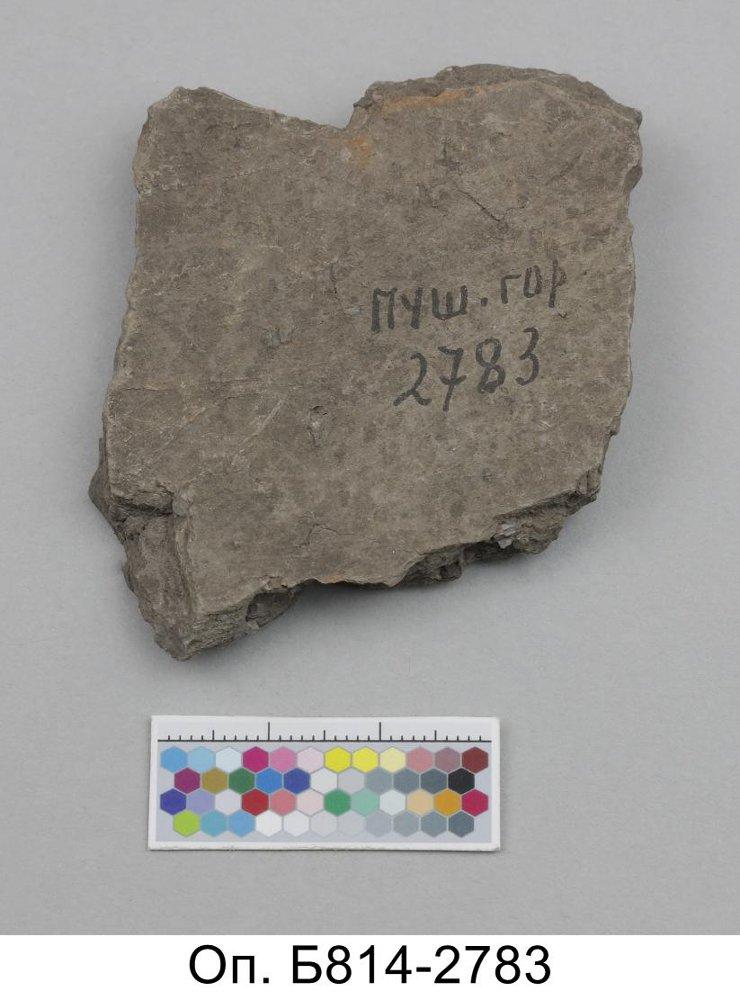 пуш. гор
2783
Оп. Б814-2783